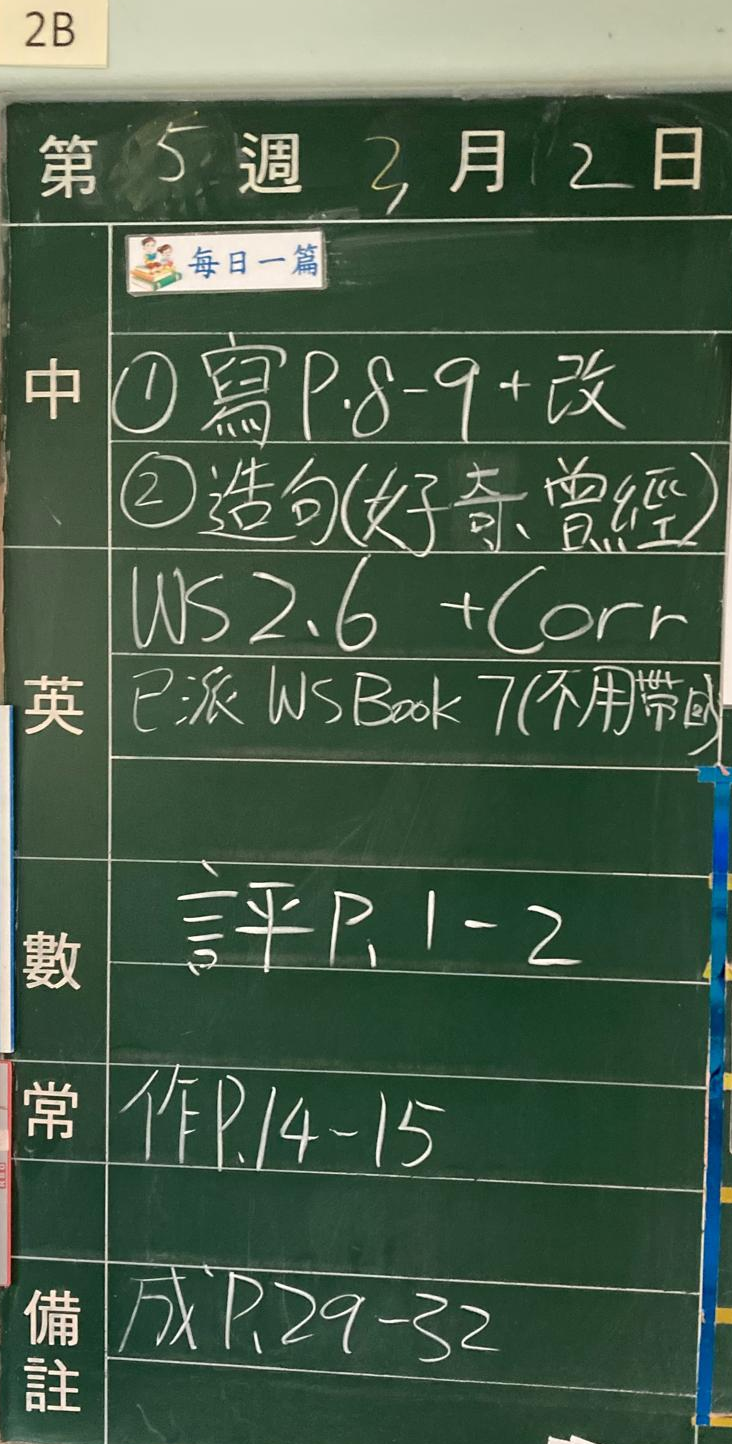 2B
第 5 週 3 月 2 日
每日一篇
中
① 寫 P.8-9 + 改
② 造句(好奇、曾經)
英
WS 2.6 + Corr
已派 WS Book 7 (不用帶回)
數
評 P. 1-2
常
作 P.14-15
備註
成 P.29-32